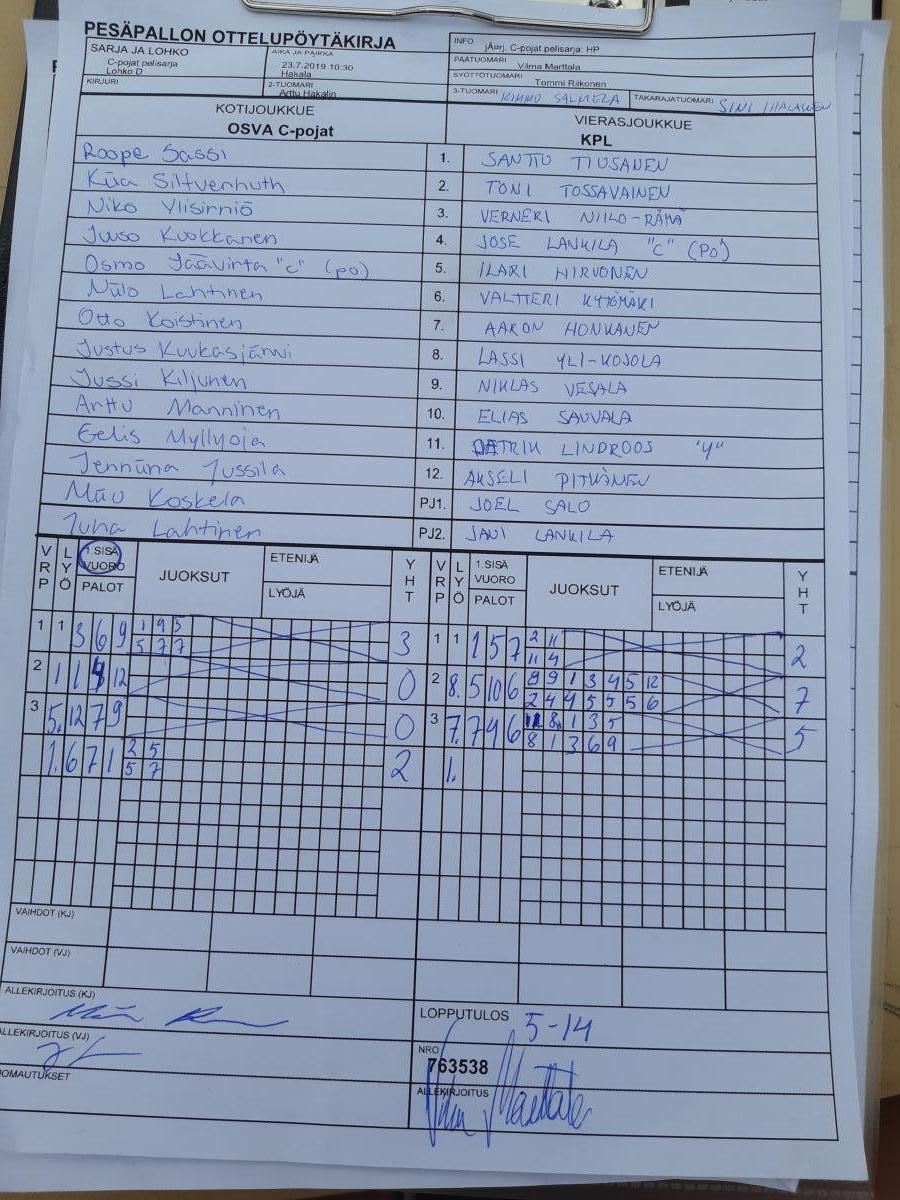 PESÄPALLON OTTELUPÖYTÄKIRJA
SARJA JA LOHKO
C-pojat pelisarja
Lohko D
AIKA JA PAIKKA
23.7.2019 10:30
Hakala
KIRJURI
2-TUOMARI
Arttu Hakalin
INFO
jÄ¤rj. C-pojat pelisarja: HP
PÄÄTUOMARI
Vilma Marttala
SYÖTTÖTUOMARI
Tommi Riikonen
3-TUOMARI KIMMO SALMELA
TAKARAJATUOMARI SINI IHALAINEN
KOTIJOUKKUE
OSVA C-pojat
VIERASJOUKKUE
KPL
Roope Sassi 1. SANTTU TIUSANEN
Kiia Siltvenhuth 2. TONI TOSSAVAINEN
Niko Ylisirniö 3. VERNERI NIILO-RÄMÄ
Juuso Kuokkanen 4. JOSE LANKILA "C" (PO)
Osmo Jäävirta "c" (po) 5. ILARI HIRVONEN
Niilo Lahtinen 6. VALTTERI KYTÖMÄKI
Otto Koistinen 7. AARON HONKANEN
Justus Kuukasjärvi 8. LASSI YLI-KOJOLA
Jussi Kiljunen 9. NIKLAS VESALA
Arttu Manninen 10. ELIAS SAUVALA
Eelis Myllyoja 11. PATRIK LINDROOS "4"
Jenniina Jussila 12. AKSELI PITKÄNEN
Miiu Koskela PJ1. JOEL SALO
Juha Lahtinen PJ2. JANI LANKILA
VRP LYÖ 1.SISÄ VUORO PALOT JUOKSUT ETENIJÄ LYÖJÄ YHT
VRP LYÖ 1.SISÄ VUORO PALOT JUOKSUT ETENIJÄ LYÖJÄ YHT
1 1 3 6 9 1 9 5 3 1 1 1 5 7 2 11 2
5 7 7 11 4
2 11 12 0 2 8. 5 10 6 8 9 1 3 4 5 12 7
2 4 4 5 5 5 6
3 5. 12 7 9 0 3 7. 7 9 6 8 1 3 5 5
8 1 3 6 9
1. 6 7 1 2 5 2 1.
5 7
VAIHDOT (KJ)
VAIHDOT (VJ)
ALLEKIRJOITUS (KJ)
ALLEKIRJOITUS (VJ)
HUOMAUTUKSET
LOPPUTULOS 5-14
NRO
763538
ALLEKIRJOITUS
Vilma Marttala